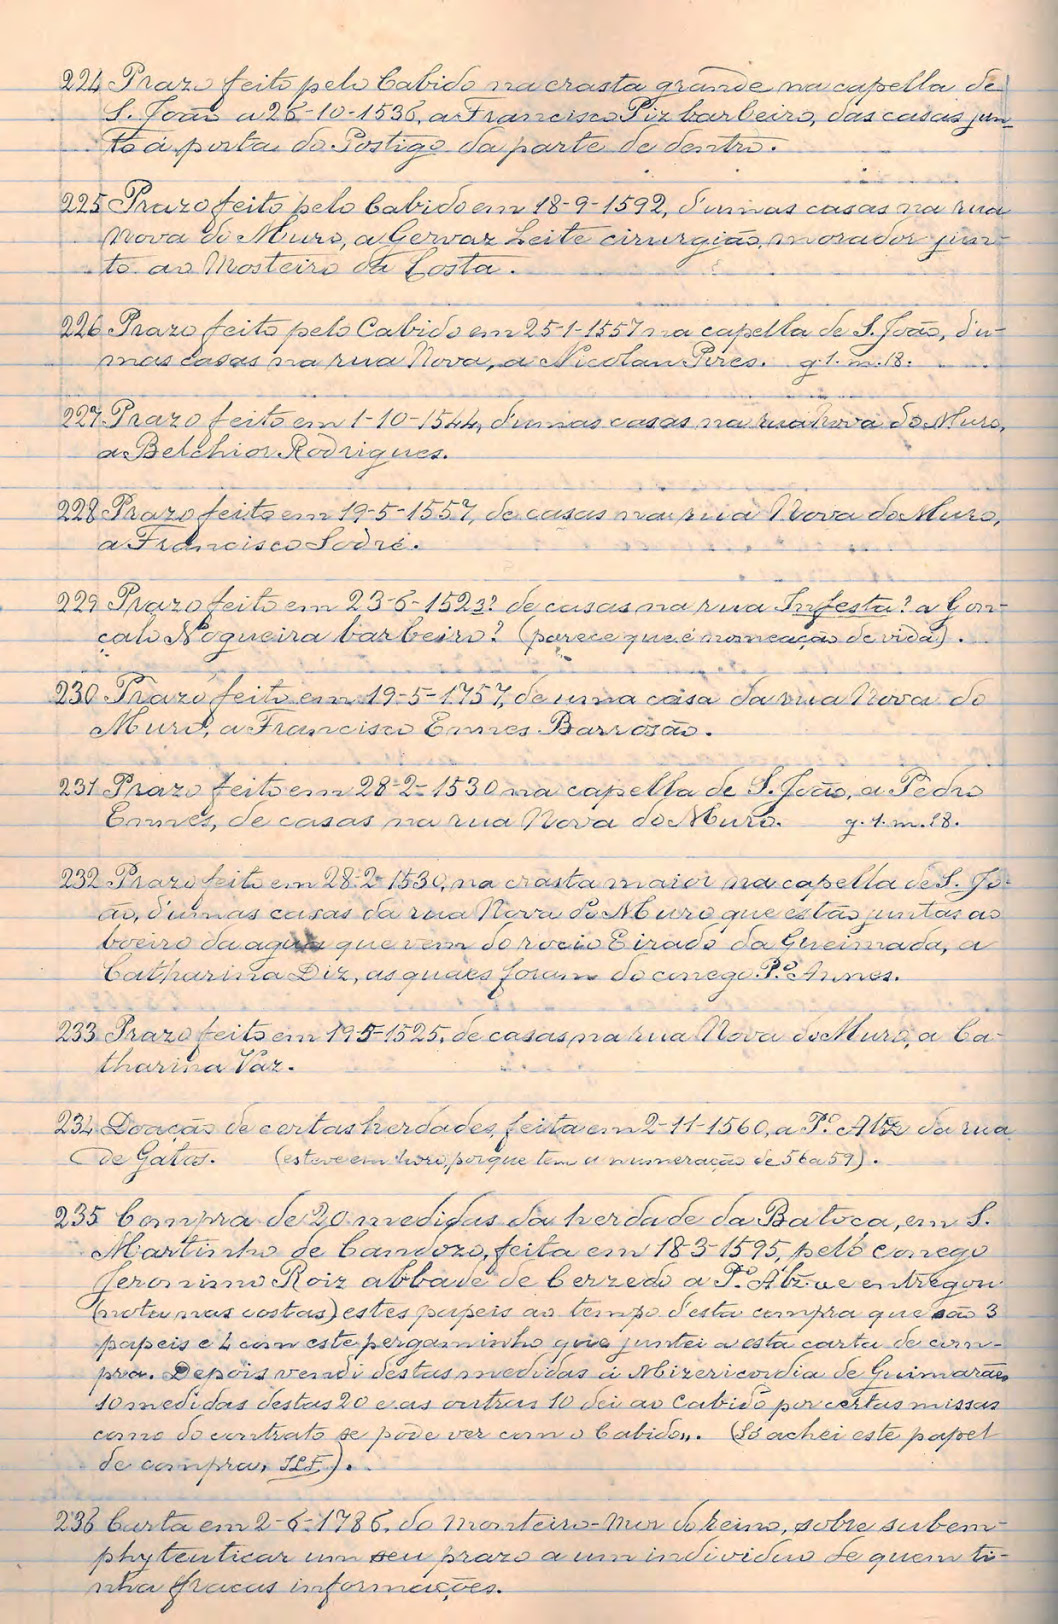 224 Prazo feito pelo Cabido na crasta grande na capella de
S. João a 26-10-1536, a Francisco Piz barbeiro, das casas jun-
to á porta do Postigo da parte de dentro.
225 Prazo feito pelo Cabido em 18-9-1592, d'umas casas na rua
Nova do Muro, a Gervaz Leite cirurgião, morador jun-
to ao Mosteiro da Costa.
226 Prazo feito pelo Cabido em 25-1-1557 na capella de S. João, d'u-
mas casas na rua Nova, a Nicolau Pires. g. 1. m. 18.
227 Prazo feito em 1-10-1544, d'umas casas na rua Nova do Muro,
a Belchior Rodrigues.
228 Prazo feito em 19-5-1557, de casas na rua Nova do Muro,
a Francisco Sodré.
229 Prazo feito em 23-6-1523? de casas na rua Infesta? a Gon-
çalo Nogueira barbeiro? (parece que é nomeação de vida).
230 Prazo feito em 19-5-1757, de uma casa da rua Nova do
Muro, a Francisco Ennes Barrosão.
231 Prazo feito em 28-2-1530 na capella de S. João, a Pedro
Ennes, de casas na rua Nova do Muro. g. 1. m. 18.
232 Prazo feito em 28-2-1530, na crasta maior na capella de S. Jo-
ão, d'umas casas da rua Nova do Muro que estão juntas ao
boeiro da agua que vem do rocio Eirado da Queimada, a
Catharina Diz, as quaes foram do conego P.º Annes.
233 Prazo feito em 19-5-1525, de casas na rua Nova do Muro, a Ca-
tharina Vaz.
234 Doação de certas herdades, feita em 2-11-1560, a P.º Alz da rua
de Gatos. (esteve em livro porque tem a numeração de 56 a 59).
235 Compra de 20 medidas da herdade da Batoca, em S.
Martinho de Candozo, feita em 18-3-1595, pelo conego
Jeronimo Roiz abbade de Cerzedo a P.º Alz "e entregou
(nota nas costas) estes papeis ao tempo desta compra que são 3
papeis e 4 com este pergaminho que juntei a esta carta de com-
pra. Depois vendi destas medidas á Mizericordia de Guimarães
10 medidas destas 20 e as outras 10 dei ao Cabido por certas missas
como do contrato se póde ver com o Cabido". (Só achei este papel
de compra, JLF.).
236 Carta em 2-6-1786, do Monteiro-Mor do reino, sobre subem-
phyteuticar um seu prazo a um individuo de quem ti-
nha fracas informações.